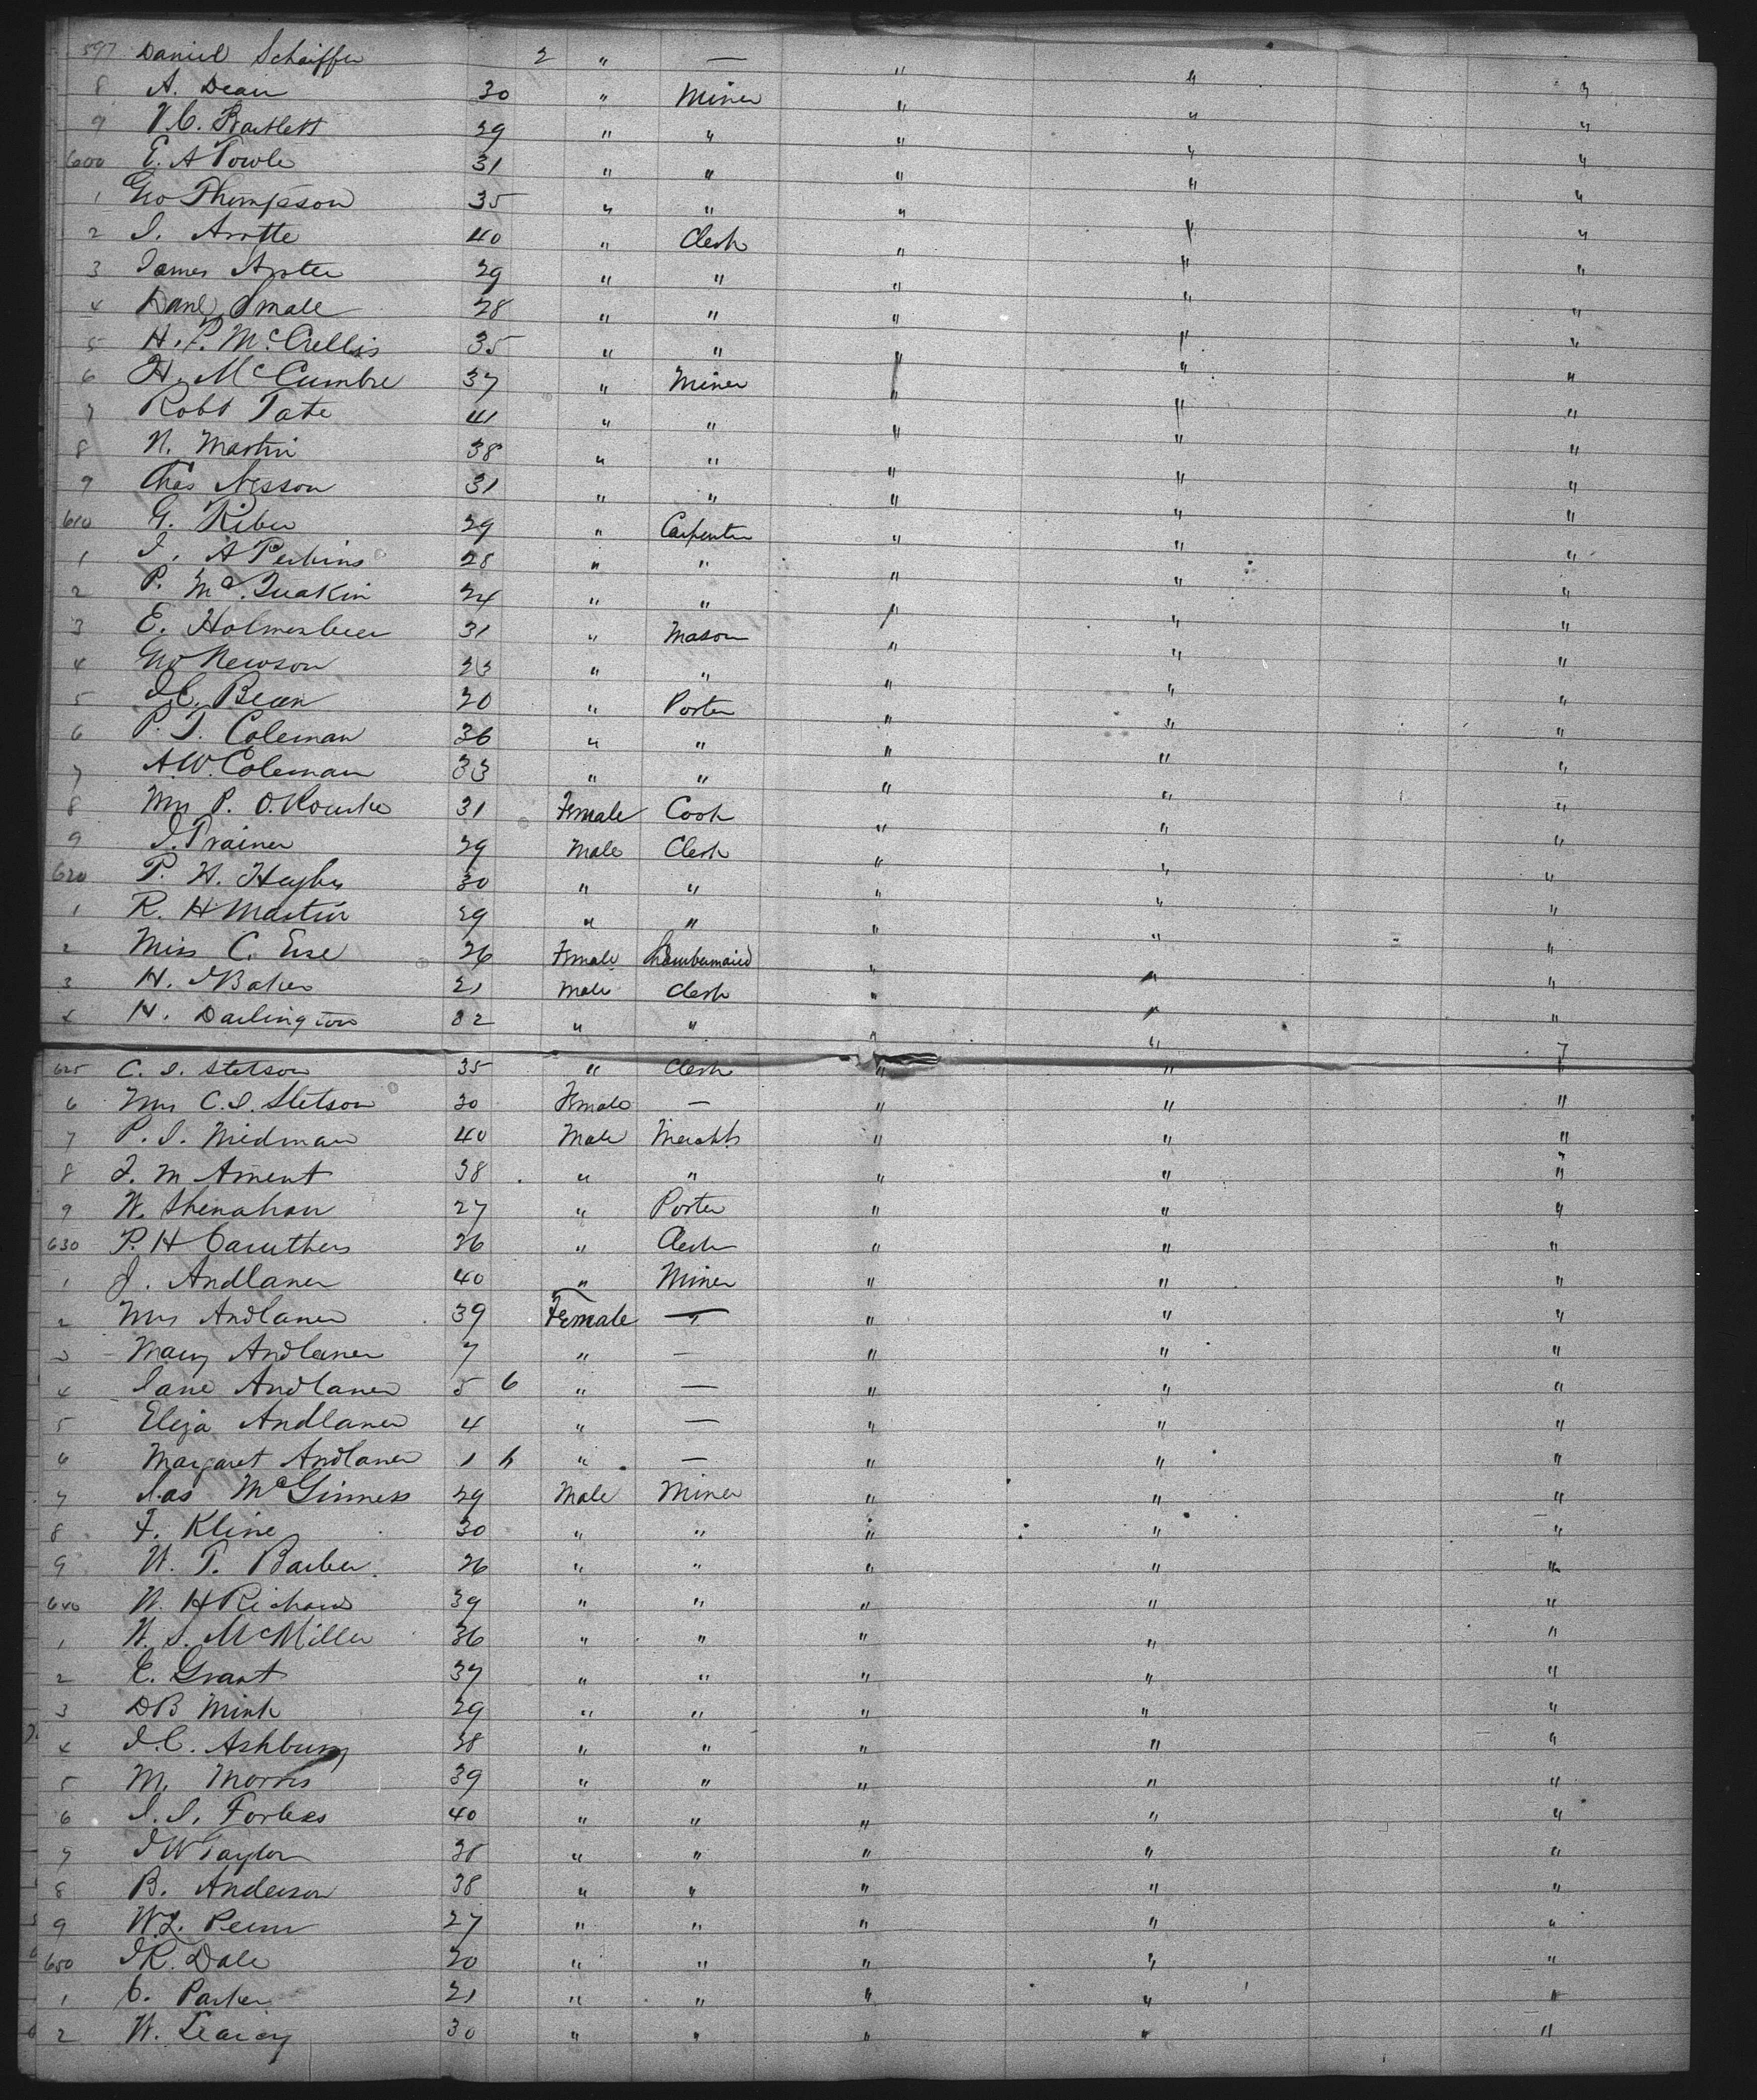 597 Daniel Schaiffer 2 " — " " "
8 A. Dean 30 " Miner " " "
9 V.C. Bartlett 29 " " " " "
600 E. A Towle 31 " " " " "
1 Geo Thompson 35 " " " " "
2 J. Arotte 40 " Clerk " " "
3 James Aroter 29 " " " " "
4 Danl Smale 28 " " " " "
5 H. P. McCrellis 35 " " " " "
6 H. McCumbre 37 " Miner " " "
7 Robt Tate 41 " " " " "
8 N. Martin 38 " " " " "
9 Chas Nesson 31 " " " " "
610 G. Riber 29 " Carpenter " " "
1 J. A Perkins 28 " " " " "
2 P. McQuakin 24 " " " " "
3 E. Holmesbeer 31 " Mason " " "
4 Geo Newson 23 " " " " "
5 J.C. Bean 20 " Porter " " "
6 P. J. Coleman 36 " " " " "
7 A.W. Coleman 33 " " " " "
8 Mrs P. O. Rourke 31 Female Cook " " "
9 J. Trainer 29 Male Clerk " " "
620 P. H. Hughes 30 " " " " "
1 R. H Martin 29 " " " " "
2 Miss C. Ense 26 Female Chambermaid " " "
3 H. J Baker 21 Male Clerk " " "
4 H. Darlington 32 " " " " "
625 C. J. Stetson 35 " Clerk " " "
6 Mrs C. J. Stetson 30 Female — " " "
7 P. J. Midman 40 Male Merchts " " "
8 J. M Ament 38 " " " " "
9 W. Shenahan 27 " Porter " " "
630 P. H Caruthers 36 " Clerk " " "
1 J. Andlaner 40 " Miner " " "
2 Mrs Andlaner 39 Female — " " "
3 Mary Andlaner 7 " — " " "
4 Jane Andlaner 5 6 " — " " "
5 Eliza Andlaner 4 " — " " "
6 Margaret Andlaner 1 " — " " "
7 Jas McGinness 29 Male Miner " " "
8 F. Kline 30 " " " " "
9 W. T. Barber 26 " " " " "
640 W. H Richard 39 " " " " "
1 W. S. McMiller 36 " " " " "
2 E. Grant 37 " " " " "
3 D B Mink 29 " " " " "
4 J.C. Ashbury 38 " " " " "
5 M. Morris 39 " " " " "
6 J. J. Forbess 40 " " " " "
7 J W Taylor 38 " " " " "
8 B. Anderson 38 " " " " "
9 W.L. Penn 27 " " " " "
650 J R. Dale 20 " " " " "
1 C. Parker 21 " " " " "
2 W. Learcy 30 " " " " "